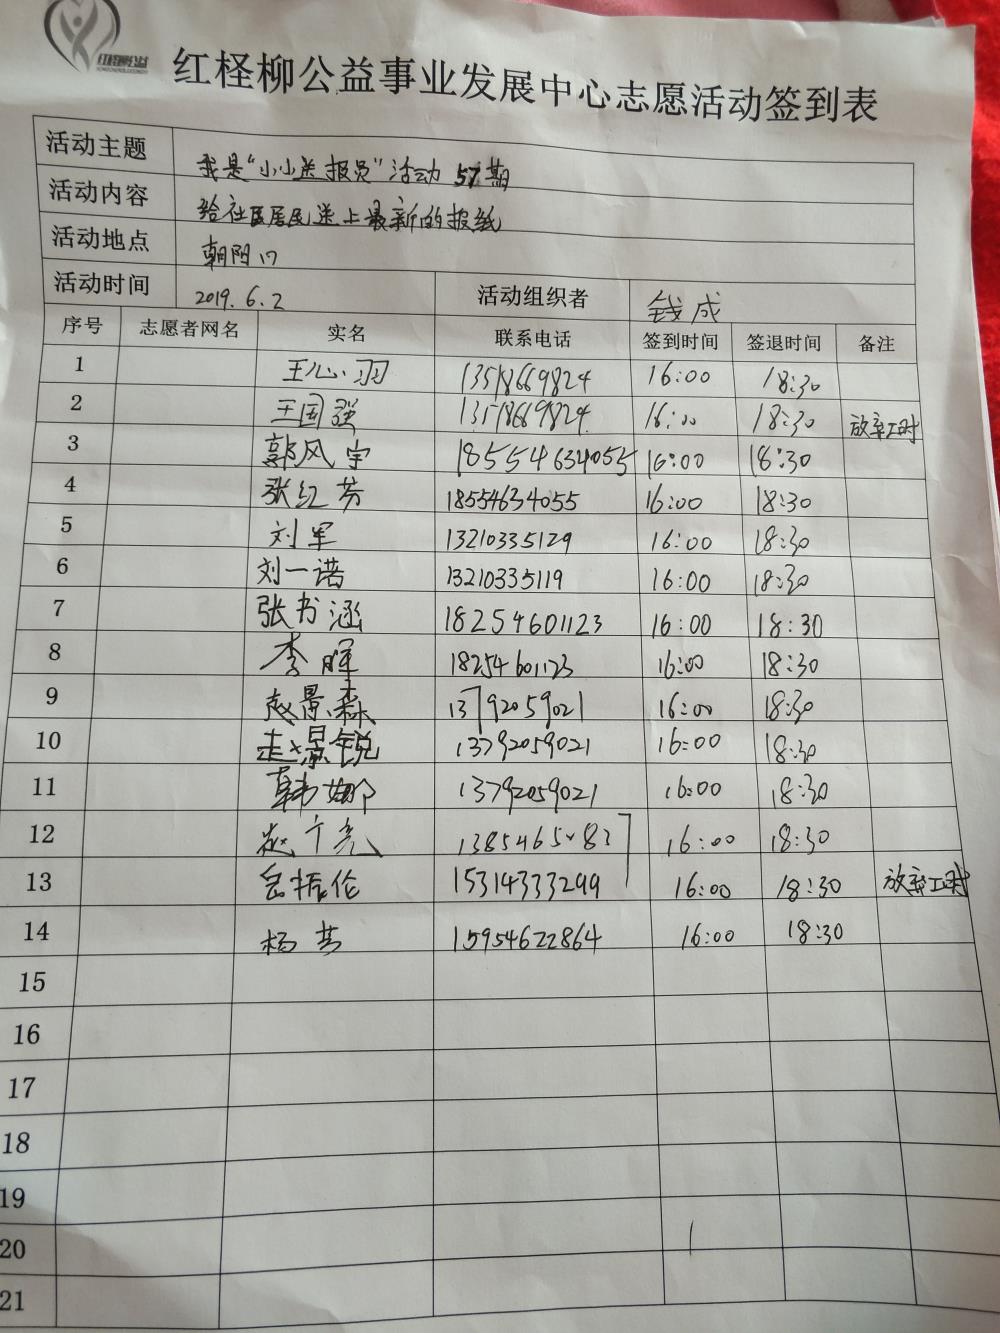 红柽柳公益
红柽柳公益事业发展中心志愿活动签到表
活动主题 我是“小小送报员”活动 57期
活动内容 给社区居民送上最新的报纸
活动地点 朝阳门
活动时间 2019.6.2 活动组织者 钱成
序号 志愿者网名 实名 联系电话 签到时间 签退时间 备注
1 王心羽 13518669824 16:00 18:30
2 王国强 13518669824 16:00 18:30 放弃工时
3 郭风宇 18554634055 16:00 18:30
4 张红芳 18554634055 16:00 18:30
5 刘军 13210335129 16:00 18:30
6 刘一诺 13210335119 16:00 18:30
7 张书涵 18254601123 16:00 18:30
8 李晖 18254601123 16:00 18:30
9 赵景森 13792059021 16:00 18:30
10 赵景锐 13792059021 16:00 18:30
11 韩娜 13792059021 16:00 18:30
12 赵 亮 16:00 18:30
13 岳振伦 15314333299 16:00 18:30 放弃工时
14 杨芳 15954622864 16:00 18:30
15
16
17
18
19
20
21